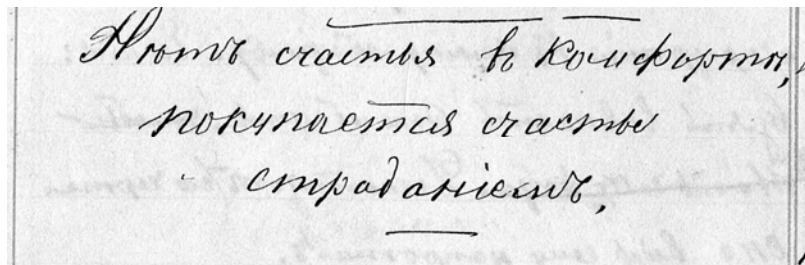 Нѣтъ счастья въ комфортѣ,
покупается счастье
страданіемъ,